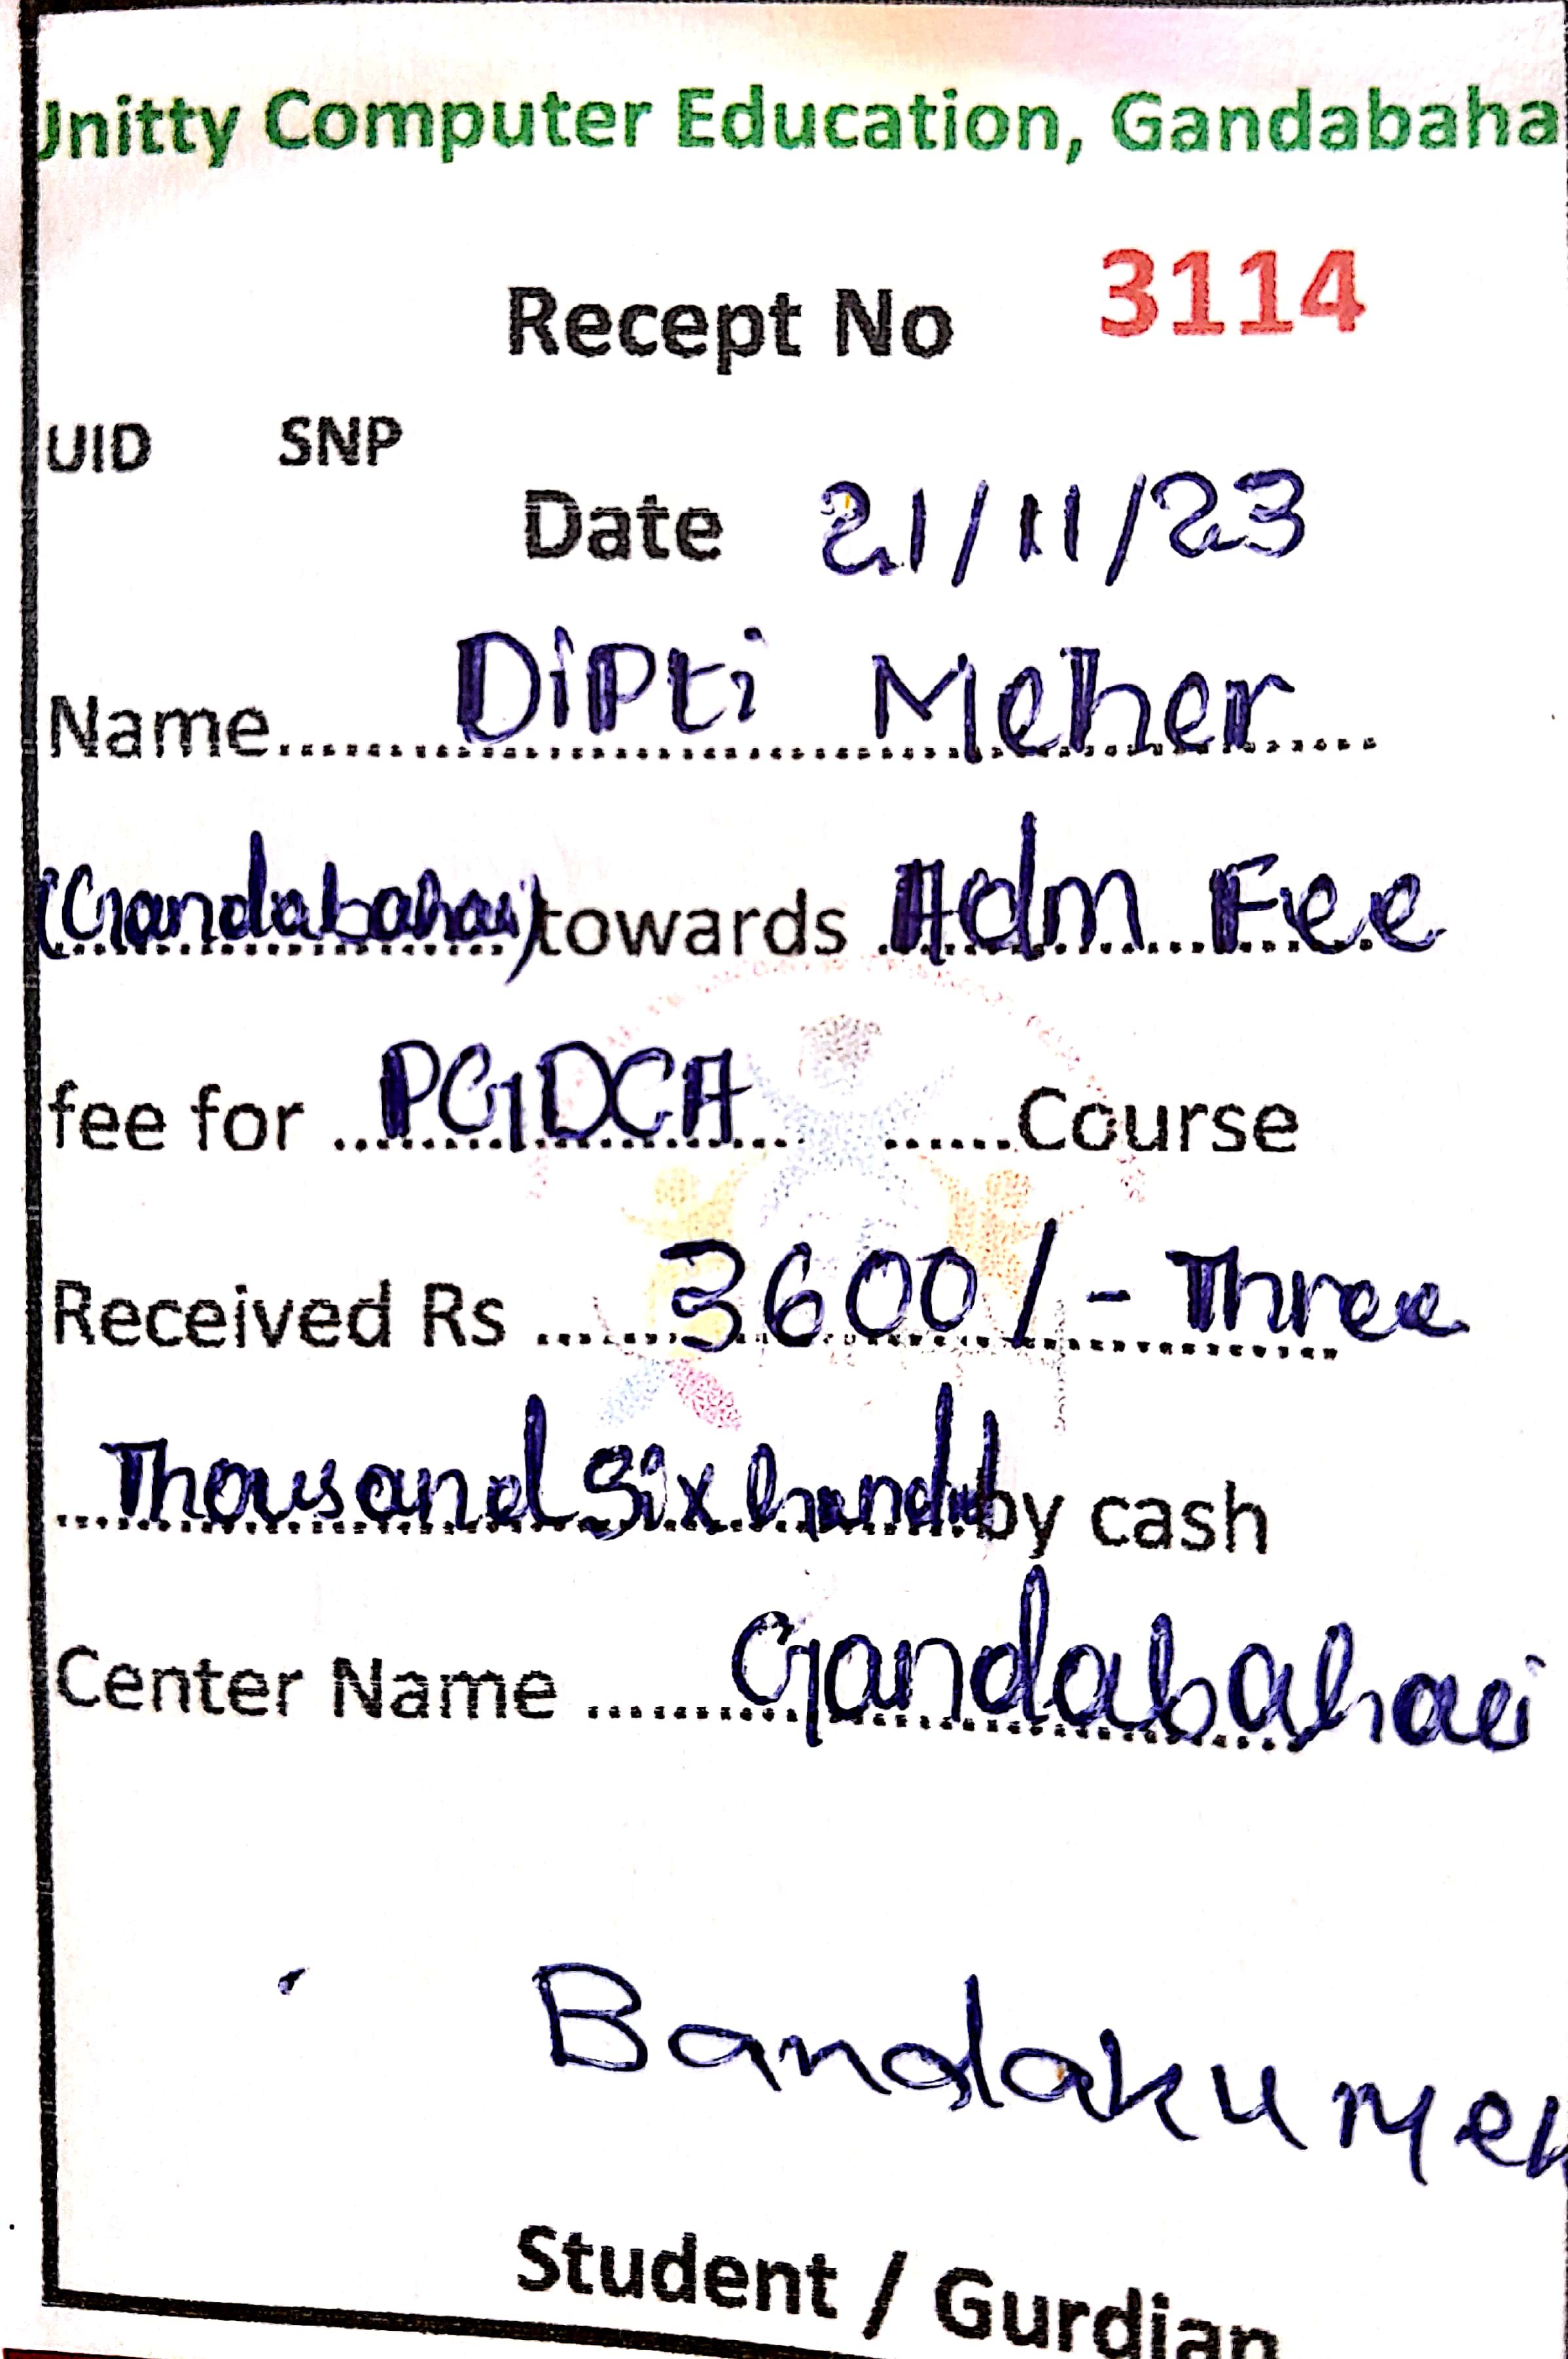 Unitty Computer Education, Gandabaha
Recept No 3114
UID SNP
Date 21/11/23
Name.......... Dipti Meher
(Gandabahai) towards Adm Fee
fee for .... PGDCA ......Course
Received Rs .... 3600/- Three
Thousand Six hundred by cash
Center Name ...... Gandabahai
Bandaku Meh
Student / Gurdian